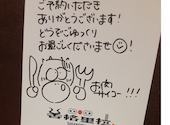 ご予約いただき
ありがとうございます！
どうぞごゆっくり
お過ごしくださいませ
お肉
サイコー!!!